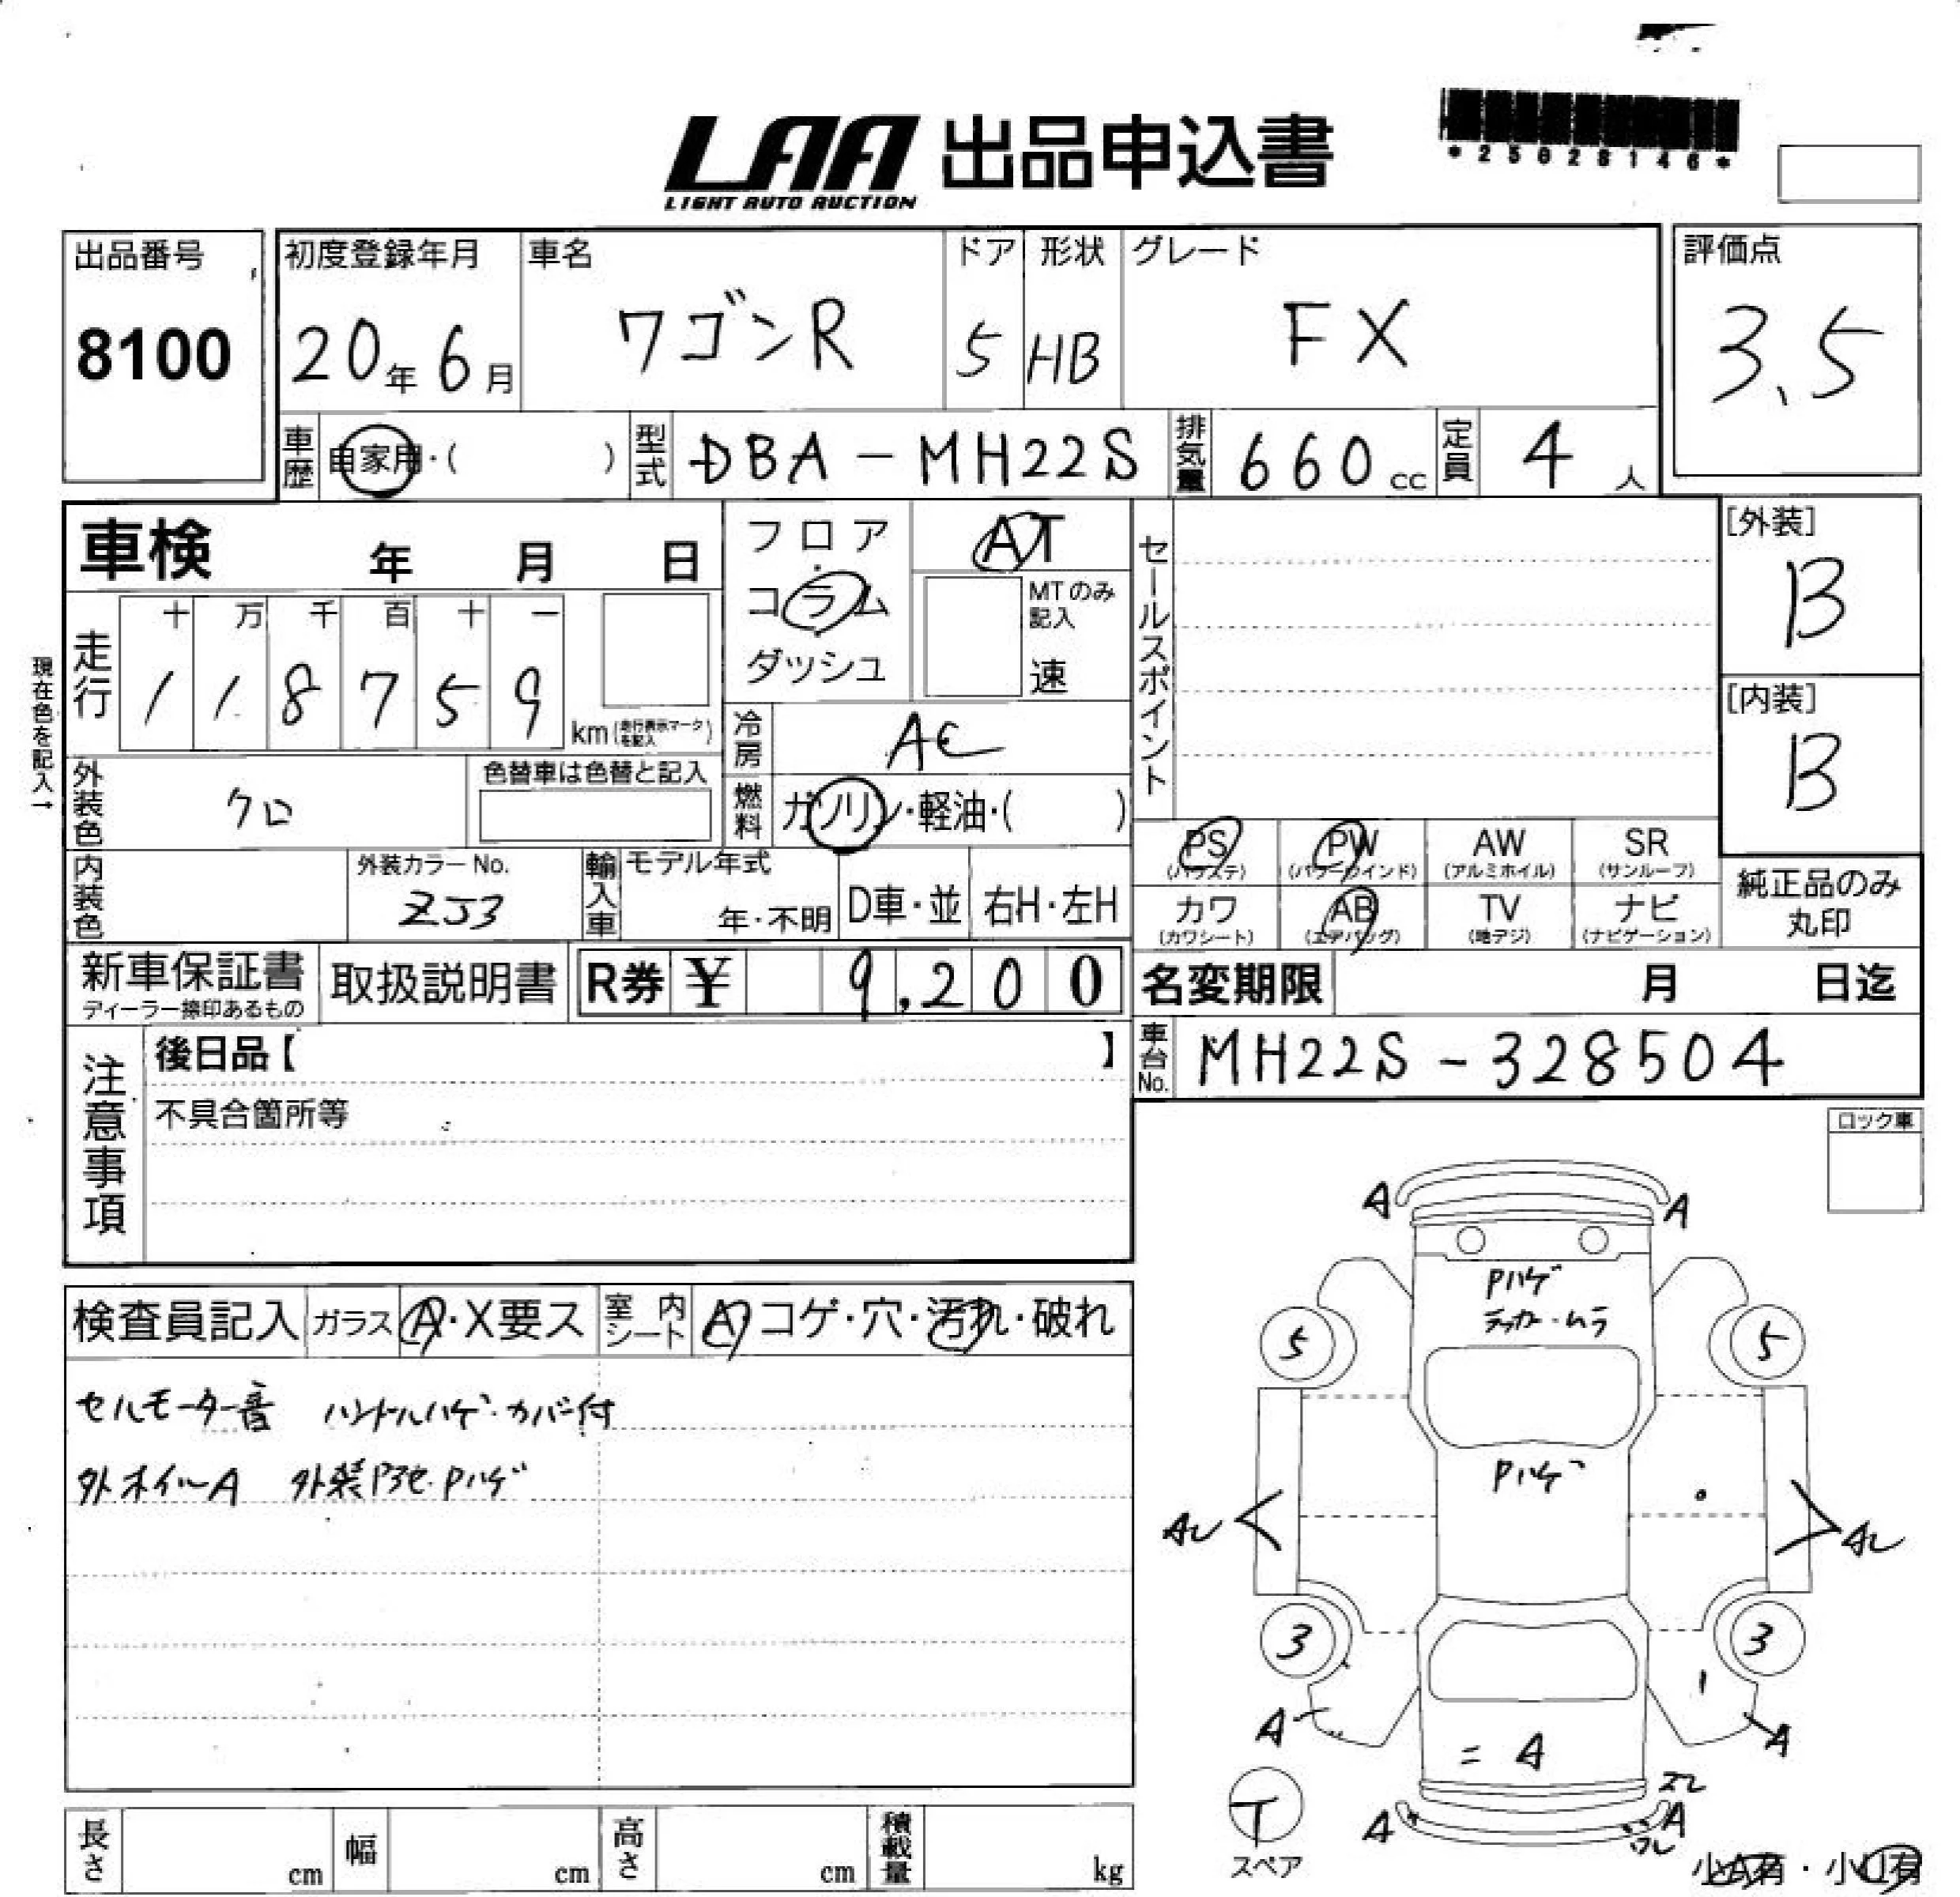 LAA 出品申込書
LIGHT AUTO AUCTION
*25028146*
出品番号
8100
初度登録年月
20年 6月
車名
ワゴンR
ドア
5
形状
HB
グレード
FX
評価点
3.5
車歴 自家用・( )
型式 DBA-MH22S
排気量 660cc
定員 4人
車検 年 月 日
走行
十 万 千 百 十 一
1 1 8 7 5 9
km(走行表示マークを記入)
現在色を記入→
外装色 クロ
色替車は色替と記入
内装色
外装カラーNo.
ZJ3
フロア
コラム
ダッシュ
AT
MTのみ記入
速
冷房 AC
燃料 ガソリン・軽油・( )
輸入車
モデル年式
年・不明
D車・並
右H・左H
セールスポイント
[外装]
B
[内装]
B
PS (パワステ)
PW (パワーウインド)
AW (アルミホイル)
SR (サンルーフ)
カワ (カワシート)
AB (エアバッグ)
TV (地デジ)
ナビ (ナビゲーション)
純正品のみ
丸印
新車保証書
ディーラー捺印あるもの
取扱説明書
R券 ¥ 9,200
名変期限 月 日迄
車台No. MH22S-328504
注意事項
後日品【 】
不具合箇所等
ロック車
検査員記入
ガラス A・X要ス
室内シート A・コゲ・穴・汚れ・破れ
セルモーター音 ハンドルハゲ・カバー付
外ホイルA 外装P
Pハゲ
A A
Pハゲ
ラッカー・ムラ
5 5
Pハゲ
3 3
A A
= A
A A
T
スペア
長さ cm
幅 cm
高さ cm
積載量 kg
小A有・小U有